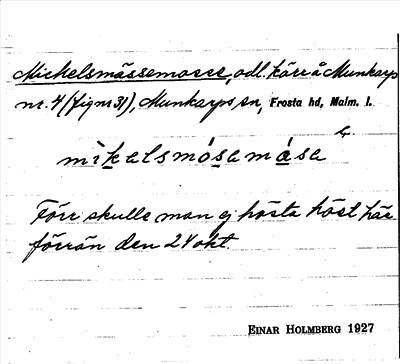 Michelsmässemosse, odl. kärr å Munkarp
nr. 4 (fig nr 31), Munkarps sn, Frosta hd, Malm. l.
mìkalsmósamása
Förr skulle man ej hösta höst här
förrän den 24 okt.
EINAR HOLMBERG 1927